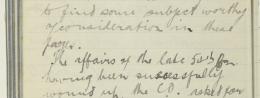 to find some subject worthy
of consideration in these
pages.
The affairs of the late 50th Bn
having been successfully
wound up the C.O. asked for